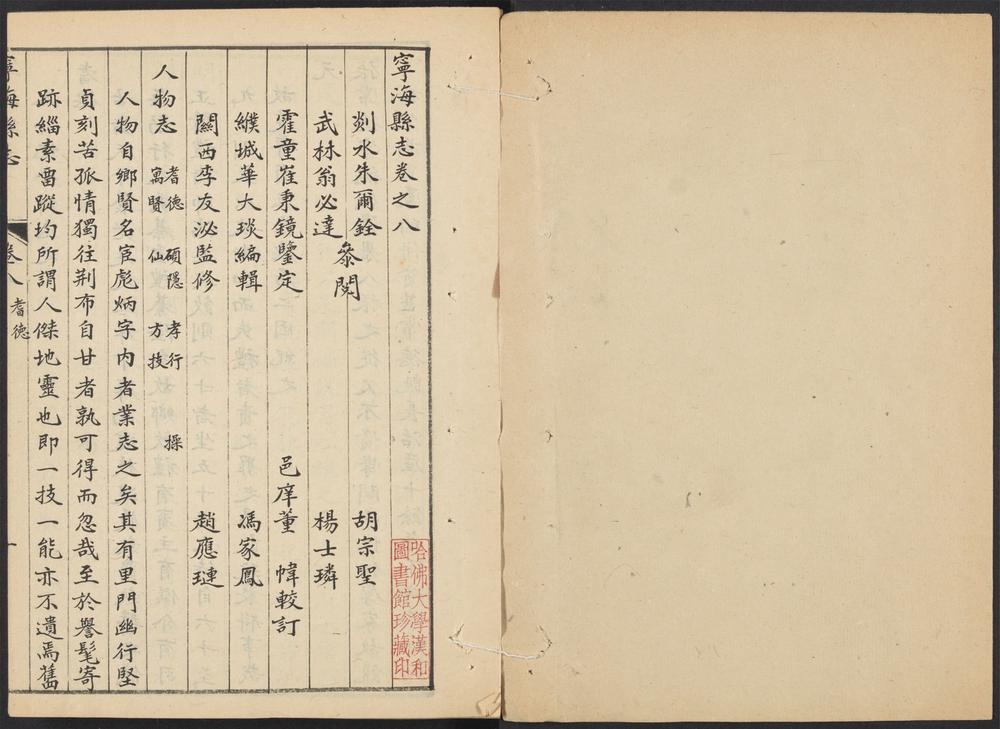 寧海縣志卷之八
剡水朱爾銓 胡宗聖
武林翁必達 叅閱 楊士璘
霍童崔秉鏡鑒定 邑庠董 幃較訂
緱城華大琰編輯 馮家鳳
關西李友泌監修 趙應璉
人物志 耆德 碩隱 孝行 操
寓賢 仙 方技
人物自鄉賢名宦彪炳字内者業志之矣其有里門幽行堅
貞刻苦孤情獨往荆布自甘者孰可得而忽哉至於譽髦寄
跡緇素畱蹤均所謂人傑地靈也即一技一能亦不遺焉舊
寧海縣志 卷八 耆德 一
哈佛大學漢和
圖書館珍藏印